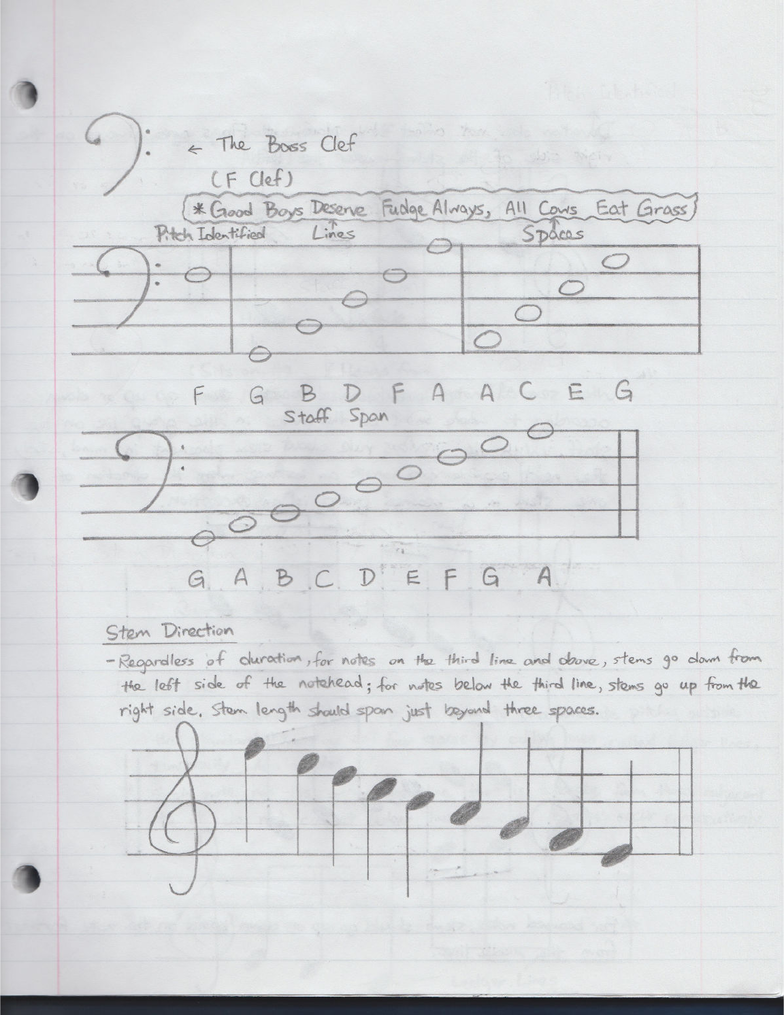 ← The Bass Clef
(F Clef)
*Good Boys Deserve Fudge Always, All Cows Eat Grass
Pitch Identified Lines Spaces
F G B D F A A C E G
Staff Span
G A B C D E F G A
Stem Direction
- Regardless of duration, for notes on the third line and above, stems go down from
the left side of the notehead; for notes below the third line, stems go up from the
right side. Stem length should span just beyond three spaces.